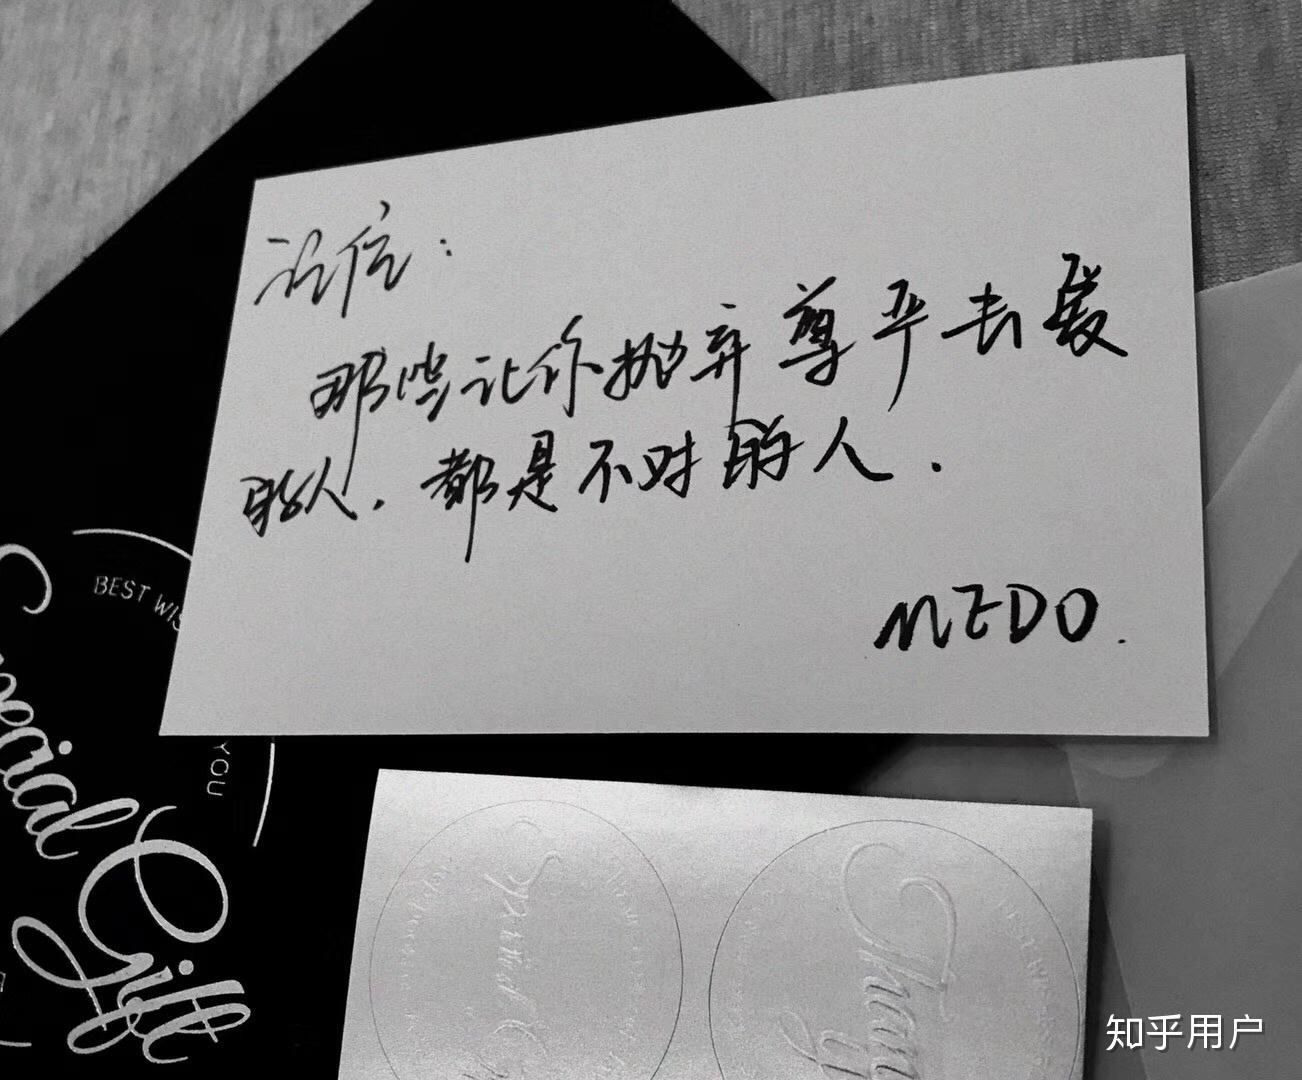 记住：
那些让你抛弃尊严去爱
的人，都是不对的人．
MEDO.
BEST WIS
YOU
Special
Gift
知乎用户